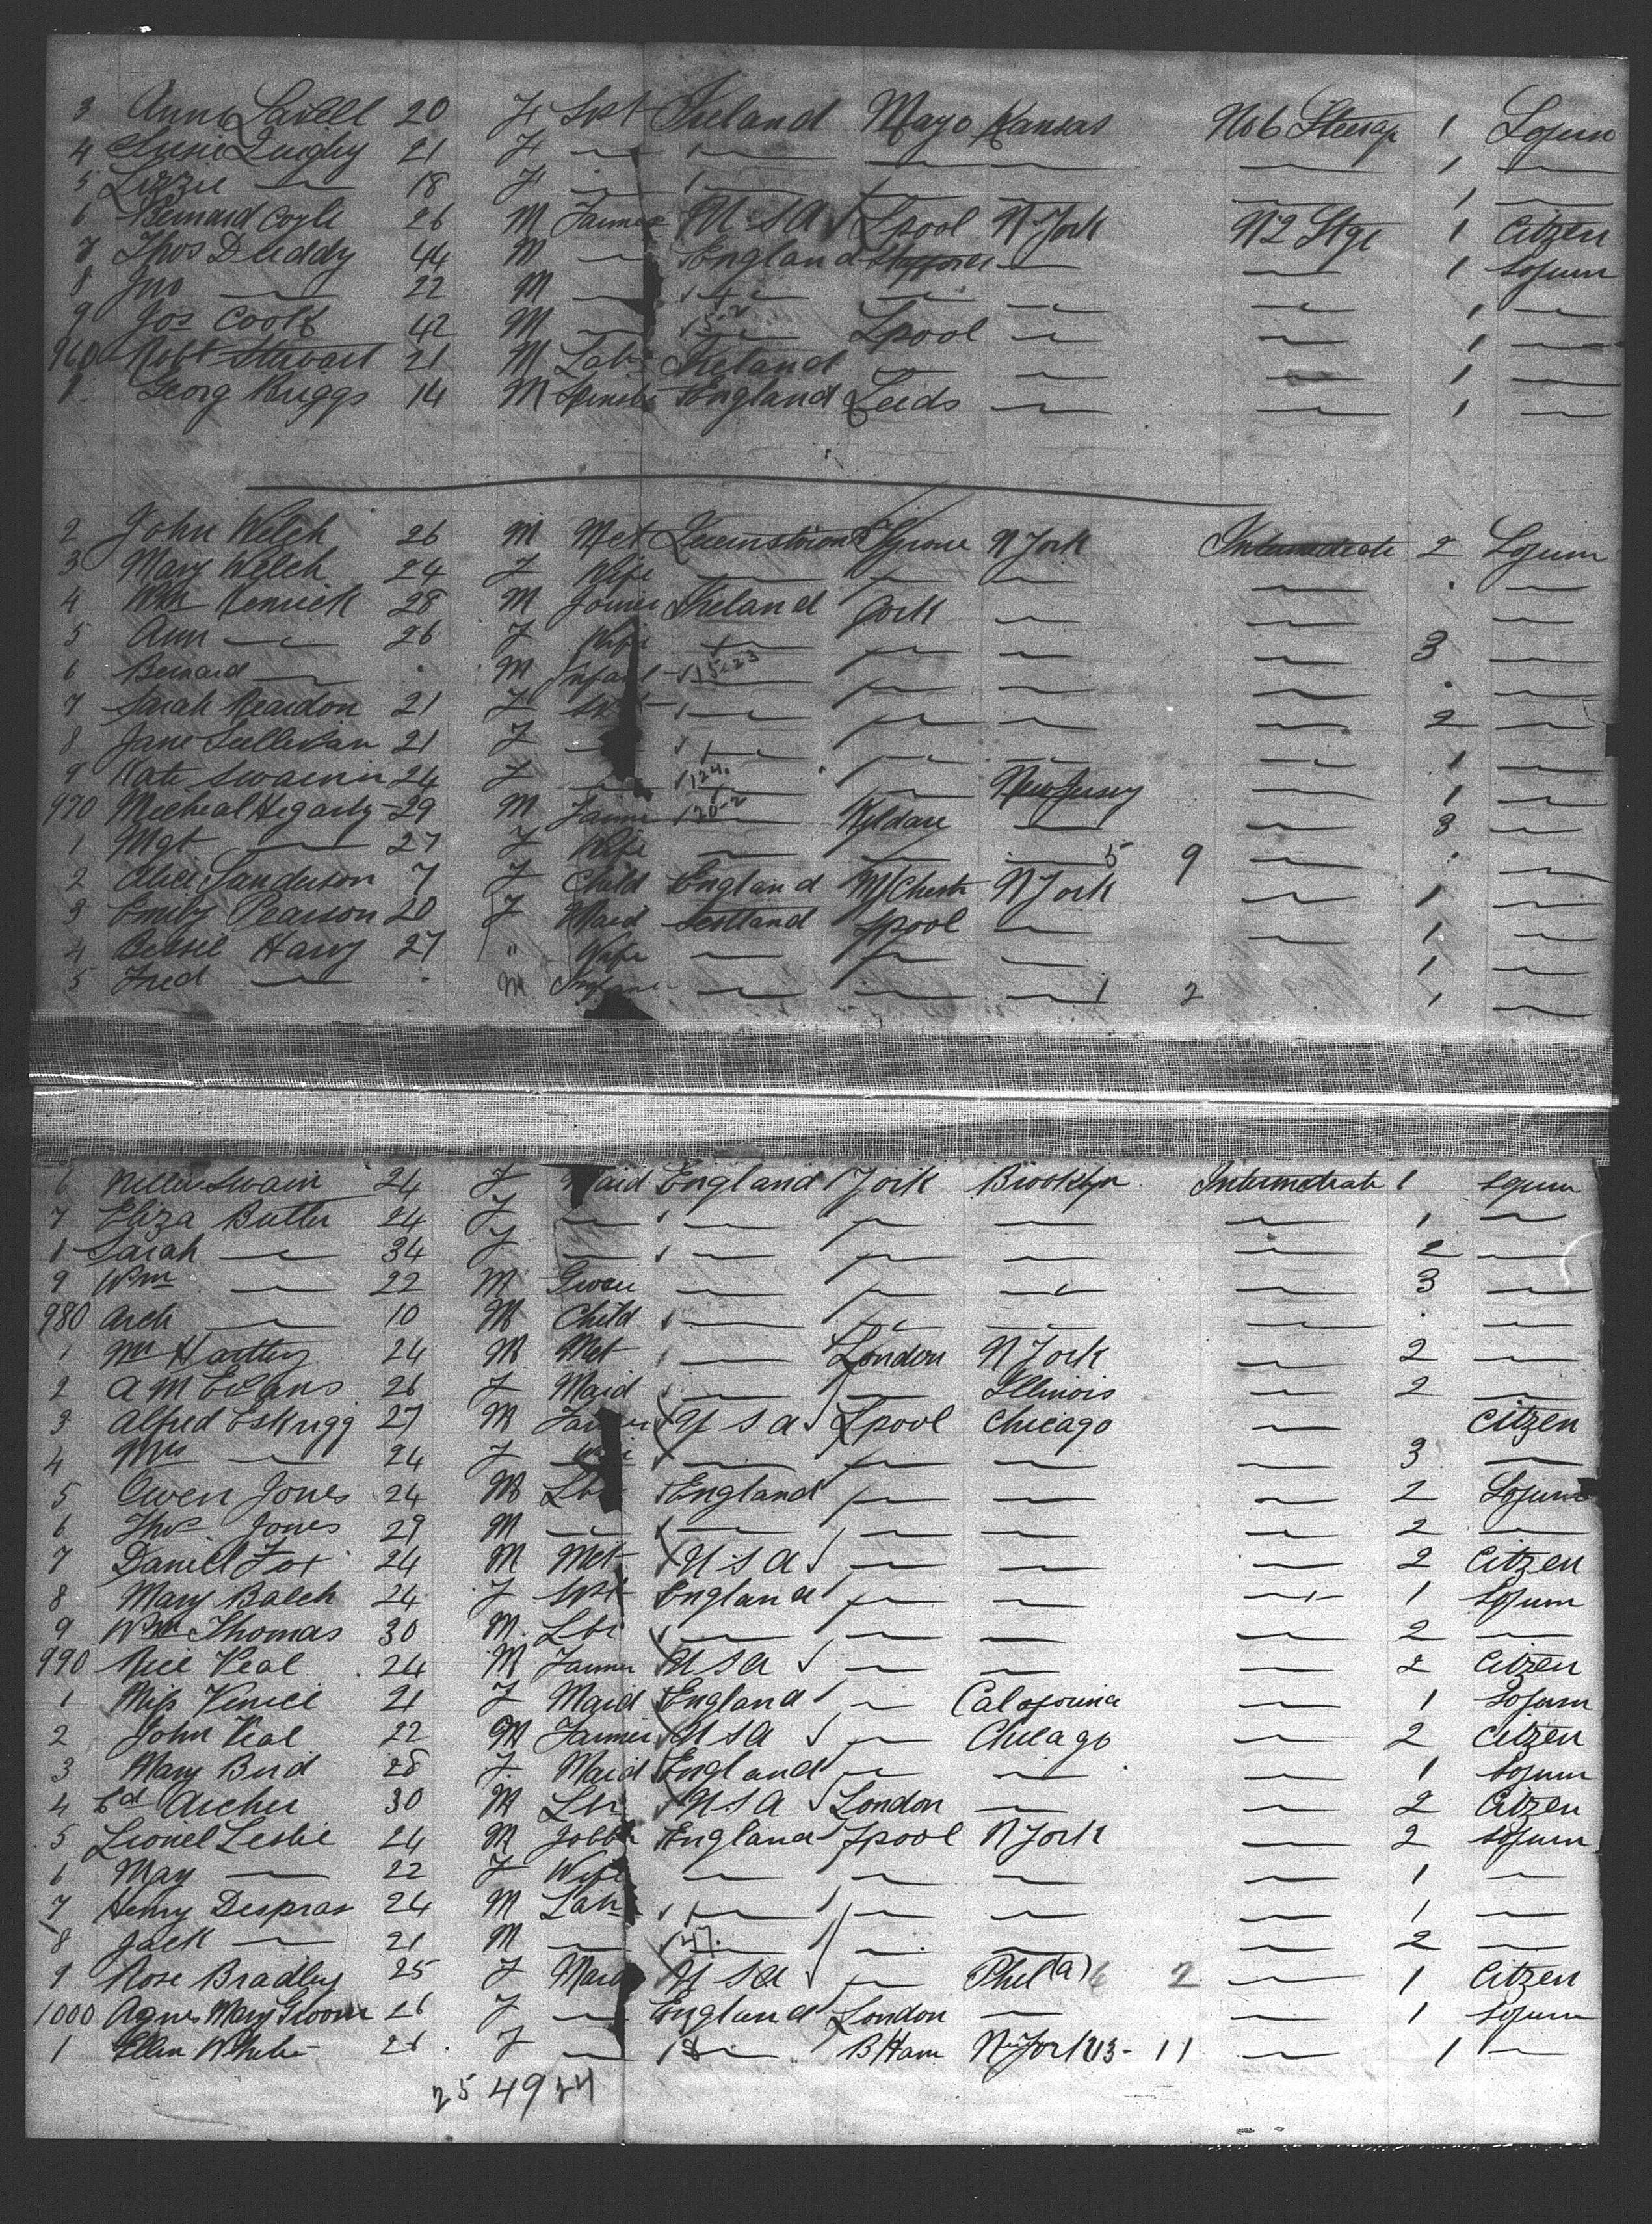 3 Ann Lavell 20 F Svt Ireland Mayo Kansas No 6 Steerage 1 Sojurn
4 Susie Quigley 21 F — — — — — 1 —
5 Lizzie — 18 F — — — — — 1 —
6 Bernard Coyle 26 M Farmer U.S.A Lpool N York N2 Stge 1 Citzen
7 Thos Duddy 44 M — England — — 1 Sojurn
8 Jno — 22 M — — — — — 1 —
9 Jos Cook 42 M — — Lpool — — 1 —
960 Robt Stewart 21 M Labr Ireland — — 1 —
1 Georg Briggs 14 M England Leeds — — 1 —
2 John Welch 26 M Met Queenstown N York Intermediate 2 Sojurn
3 Mary Welch 24 F Wife — — — — —
4 Wm Kenrick 28 M Joiner Ireland Cork — — —
5 Ann — 26 F Wife — — — — 3 —
6 Bernard — M Infant 15-23 — — — —
7 Sarah Reardon 21 F Svt — — — — 2 —
8 Jane Sullivan 21 F — — — — — 1 —
9 Kate 24 F — 124 — — New Jersey — 1 —
970 Micheal Hegarty 29 M Farmer 20-2 Kyldare — — 3 —
1 Mgt — 27 F Wife — — — 5 9 — —
2 Alice Sanderson 7 F Child England M/Chestr N York — 1 —
3 Emily Pearson 20 F Maid Scotland Lpool — — 1 —
4 Bessie Harvy 27 " Wife — — — — 1 —
5 Fred — M — — — 1 2 1 —
6 Nellie Swain 24 F Maid England York Brooklyn Intermediate 1 Sojurn
7 Eliza Butler 24 F — — — — — 1 —
1 Sarah — 34 F — — — — — 2 —
9 Wm — 22 M — — — — 3 —
980 Arch — 10 M Child — — — — —
1 Hartley 24 M Met — London N York — 2 —
2 A M Evans 26 F Maid — — Illinois — 2 —
3 Alfred Eskrigg 27 M Farmer U S A Lpool Chicago — Citzen
4 Mrs — 24 F Wife — — — — 3 —
5 Owen Jones 24 M Lbr England — — — 2 Sojurn
6 Thos Jones 29 M — — — — — 2 —
7 Daniel Fox 24 M Met U S A — — — 2 Citzen
8 Mary Balch 24 F Svt England — — — 1 Sojurn
9 Wm Thomas 30 M Lbr — — — — 2 —
990 Veal 24 M Farmer U S A — — — 2 Citzen
1 Miss 21 F Maid England — Calofornia — 1 Sojurn
2 John Veal 22 M Farmer U S A — Chicago — 2 Citzen
3 Mary Bird 28 F Maid England — — — 1 Sojurn
4 Ed Archer 30 M Lbr U S A London — — 2 Citzen
5 Lionel Leslie 24 M Jobbr England Lpool N York — 2 Sojurn
6 May — 22 F Wife — — — — 1 —
7 Henry Despras 24 M Labr — — — — 1 —
8 Jack — 21 M — 47 — — — 2 —
9 Rose Bradley 25 F Maid U S A — Phil(a) 6 2 — 1 Citzen
1000 Agnes Mary Groom 26 F — England London — — 1 Sojurn
1 Ellen White 26 F — 18 B Ham N York 13 - 11 — 1 —
25 49 24